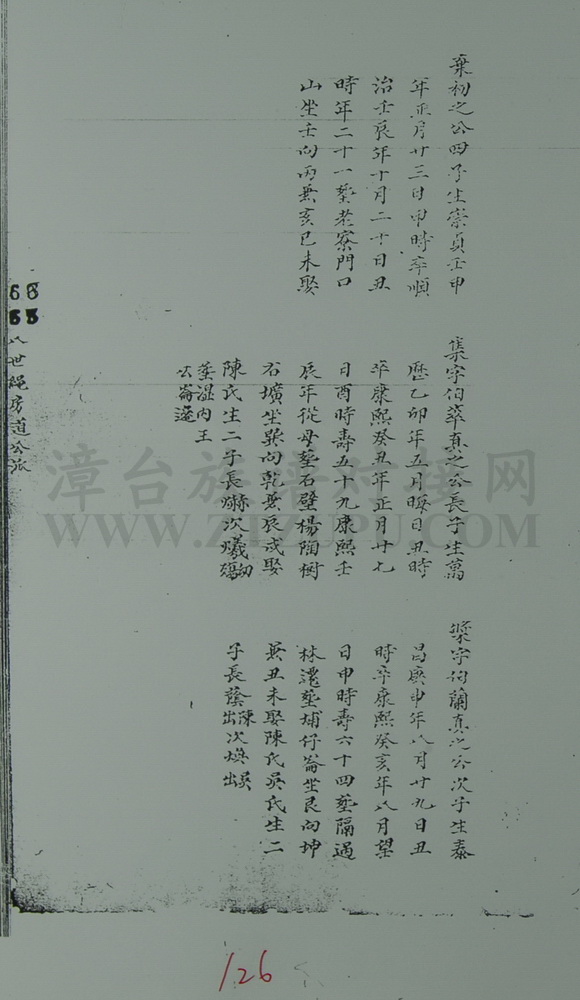 棄初之公四子生崇貞壬申
年正月廿三日申時卒順
治壬辰年十月二十日丑
時年二十一塟老寮門口
山坐壬向丙兼亥巳未娶
集字伯萃真之公長子生萬
歷乙卯年五月晦日丑時
卒康熙癸丑年正月廿七
日酉時壽五十九康熙壬
辰年從母塟石壁楊陶樹
石壙坐巽向乾兼辰戌娶
陳氏生二子長 次㬢
塟湿内王
公崙邊
字伯蘭真之公次子生泰
昌庚申年八月廿九日丑
時卒康熙癸亥年八月望
日申時壽六十四塟隔過
林還塟埔仔崙坐艮向坤
兼丑未娶陳氏吳氏生二
子長蔭陳出次煥吳出
八世繩房道公派
68
65
漳台族谱对接网
WWW.ZTZUPU.COM
126